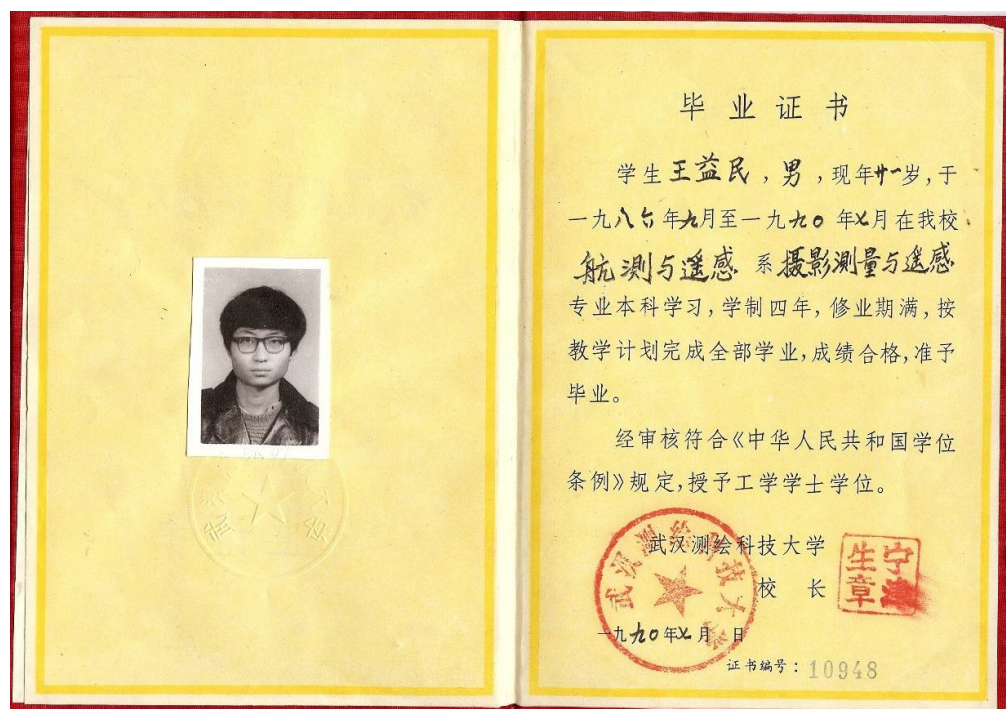 毕业证书
学生王益民，男，现年廿一岁，于
一九八六年九月至一九九〇年七月在我校
航测与遥感系摄影测量与遥感
专业本科学习，学制四年，修业期满，按
教学计划完成全部学业，成绩合格，准予
毕业。
经审核符合《中华人民共和国学位
条例》规定，授予工学学士学位。
武汉测绘科技大学
校长
武汉测绘科技大学
宁
生章
一九九〇年七月 日
证书编号：10948